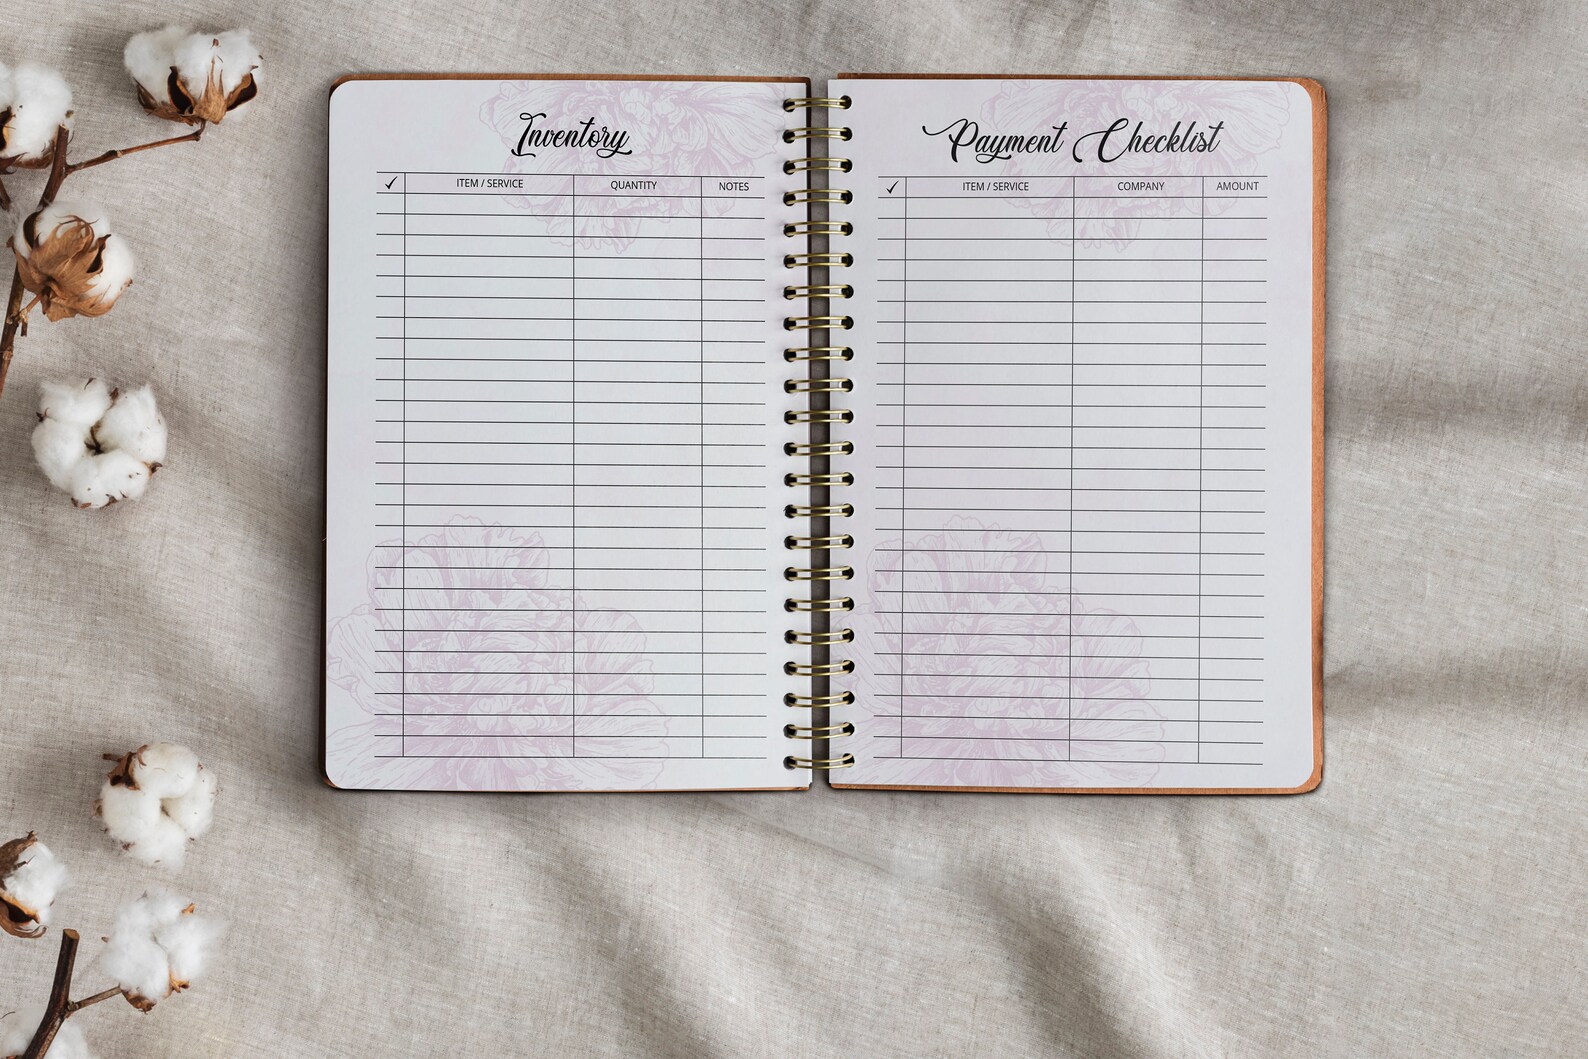 Inventory
✓ ITEM / SERVICE QUANTITY NOTES
Payment Checklist
✓ ITEM / SERVICE COMPANY AMOUNT